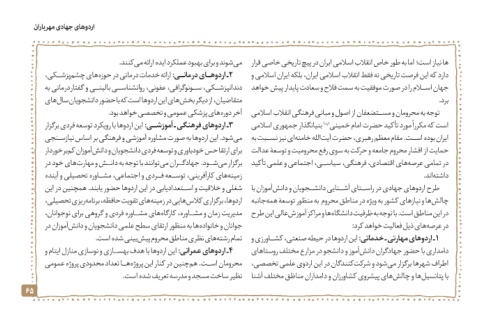 اردوهای جهادی مهرباران
ها نیاز است؛ اما به طور خاص انقلاب اسلامی ایران در پیچ تاریخی خاصی قرار
دارد که این فرصت تاریخی نه فقط انقلاب اسلامی ایران، بلکه ایران اسلامی و
جهان اسلام را در صورت موفقیت به سمت فلاح و سعادت پایدار پیش خواهد
برد.
توجه به محرومان و مستضعفان از اصول و مبانی فرهنگی انقلاب اسلامی
است که مکرراً مورد تأکید حضرت امام خمینی(ره) بنیانگذار جمهوری اسلامی
ایران بوده است. مقام معظم رهبری، حضرت آیت‌الله خامنه‌ای نیز نسبت به
حمایت از اقشار محروم جامعه و حرکت به سوی رفع محرومیت و توسعۀ عدالت
در تمامی عرصه‌های اقتصادی، فرهنگی، سیاسی، اجتماعی و علمی تأکید
داشته‌اند.
طرح اردوهای جهادی در راستای آشنایی دانشجویان و دانش‌آموزان با
چالش‌ها و نیازهای کشور به ویژه در مناطق محروم به منظور توسعۀ همه‌جانبه
در این مناطق است. با توجه به ظرفیت دانشگاه‌ها و مراکز آموزش عالی این طرح
در عرصه‌های ذیل فعالیت خواهد کرد:
۱ـ اردوهای مهارتی ـ خدماتی: این اردوها در حیطه صنعتی، کشاورزی و
دامداری با حضور جهادگران دانش‌آموز و دانشجو در مزارع مختلف روستاهای
اطراف شهرها برگزار می‌شود و شرکت‌کنندگان در این اردوی علمی تخصصی،
با پتانسیل‌ها و چالش‌های پیشروی کشاورزان و دامداران مناطق مختلف آشنا
می‌شوند و برای بهبود عملکرد ایده ارائه می‌کنند.
۲ـ اردوهای درمانی: ارائه خدمات درمانی در حوزه‌های چشم‌پزشکی،
دندانپزشکی، سونوگرافی، عفونی، روانشناسی بالینی و گفتاردرمانی به
متقاضیان، از دیگر بخش‌های این اردوها است که با حضور دانشجویان سال‌های
آخر دوره‌های پزشکی عمومی و تخصصی خواهد بود.
۳ـ اردوهای فرهنگی ـ آموزشی: این اردوها با رویکرد توسعه فردی برگزار
می‌شود. این اردوها به صورت مشاوره آموزشی و فرهنگی بر اساس نیازسنجی
برای ارتقا حس خودباوری و توسعه فردی دانشجویان و دانش‌آموزان کم‌برخوردار
برگزار می‌شود. جهادگران می‌توانند با توجه به دانش و مهارت‌های خود در
زمینه‌های کارآفرینی، توسعه فردی و اجتماعی، مشاوره تحصیلی و آینده
شغلی و خلاقیت و استعدادیابی در این اردوها حضور یابند. همچنین در این
اردوها، برگزاری کلاس‌هایی در زمینه‌های تقویت حافظه، برنامه‌ریزی تحصیلی،
مدیریت زمان و مشاوره، کارگاه‌های مشاوره فردی و گروهی برای نوجوانان،
جوانان و خانواده‌ها به منظور ارتقای سطح علمی دانشجویان و دانش‌آموزان در
تمام رشته‌های نظری مناطق محروم پیش‌بینی شده است.
۴ـ اردوهای عمرانی: این اردوها با هدف بهسازی و نوسازی منازل ایتام و
محرومان است. هم‌چنین در کنار این پروژه‌ها تعداد محدودی پروژه عمومی
نظیر ساخت مسجد و مدرسه تعریف شده است.
۶۵